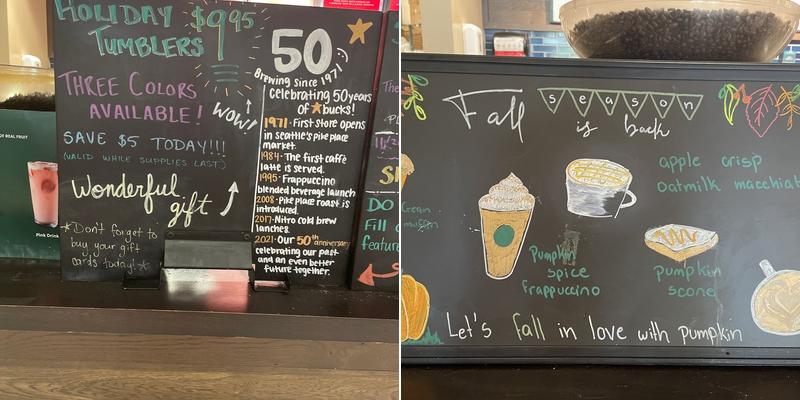 HOLIDAY $9.95
TUMBLERS
THREE COLORS
AVAILABLE!
WOW!
SAVE $5 TODAY!!!
(VALID WHILE SUPPLIES LAST)
Wonderful
gift
*Don't forget to
buy your gift
cards today!*
OF REAL FRUIT
Pink Drink
50
Brewing since 1971
Celebrating 50 years
of bucks!
1971 - First store opens
in seattle's pike place
market.
1984 - The first caffè
latte is served.
1995 - Frappuccino
blended beverage launch
2008 - Pike place roast is
introduced.
2017 - Nitro cold brew
launches.
2021 - Our 50th anniversary
celebrating our past
and an even better
future together.
Fill
feature
Fall season
is back
apple crisp
oatmilk macchiat
Cream
muffin
Pumpkin
spice
frappuccino
pumpkin
scone
Let's fall in love with pumpkin